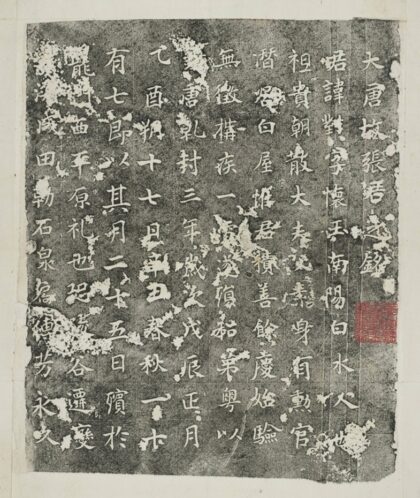 大唐故張君之銘
君諱對字懷玉南陽白水人也
祖貴朝散大夫父素身有勳官
潛居白屋惟君積善餘慶始驗
無徵搆疾一殞私第粵以
唐乾封三年歲次戊辰正月
乙酉朔十七日辛丑春秋一十
有七即以其月二十五日殯於
龍西平原礼也恐陵谷遷變
海成田勒石泉扃傳芳永久